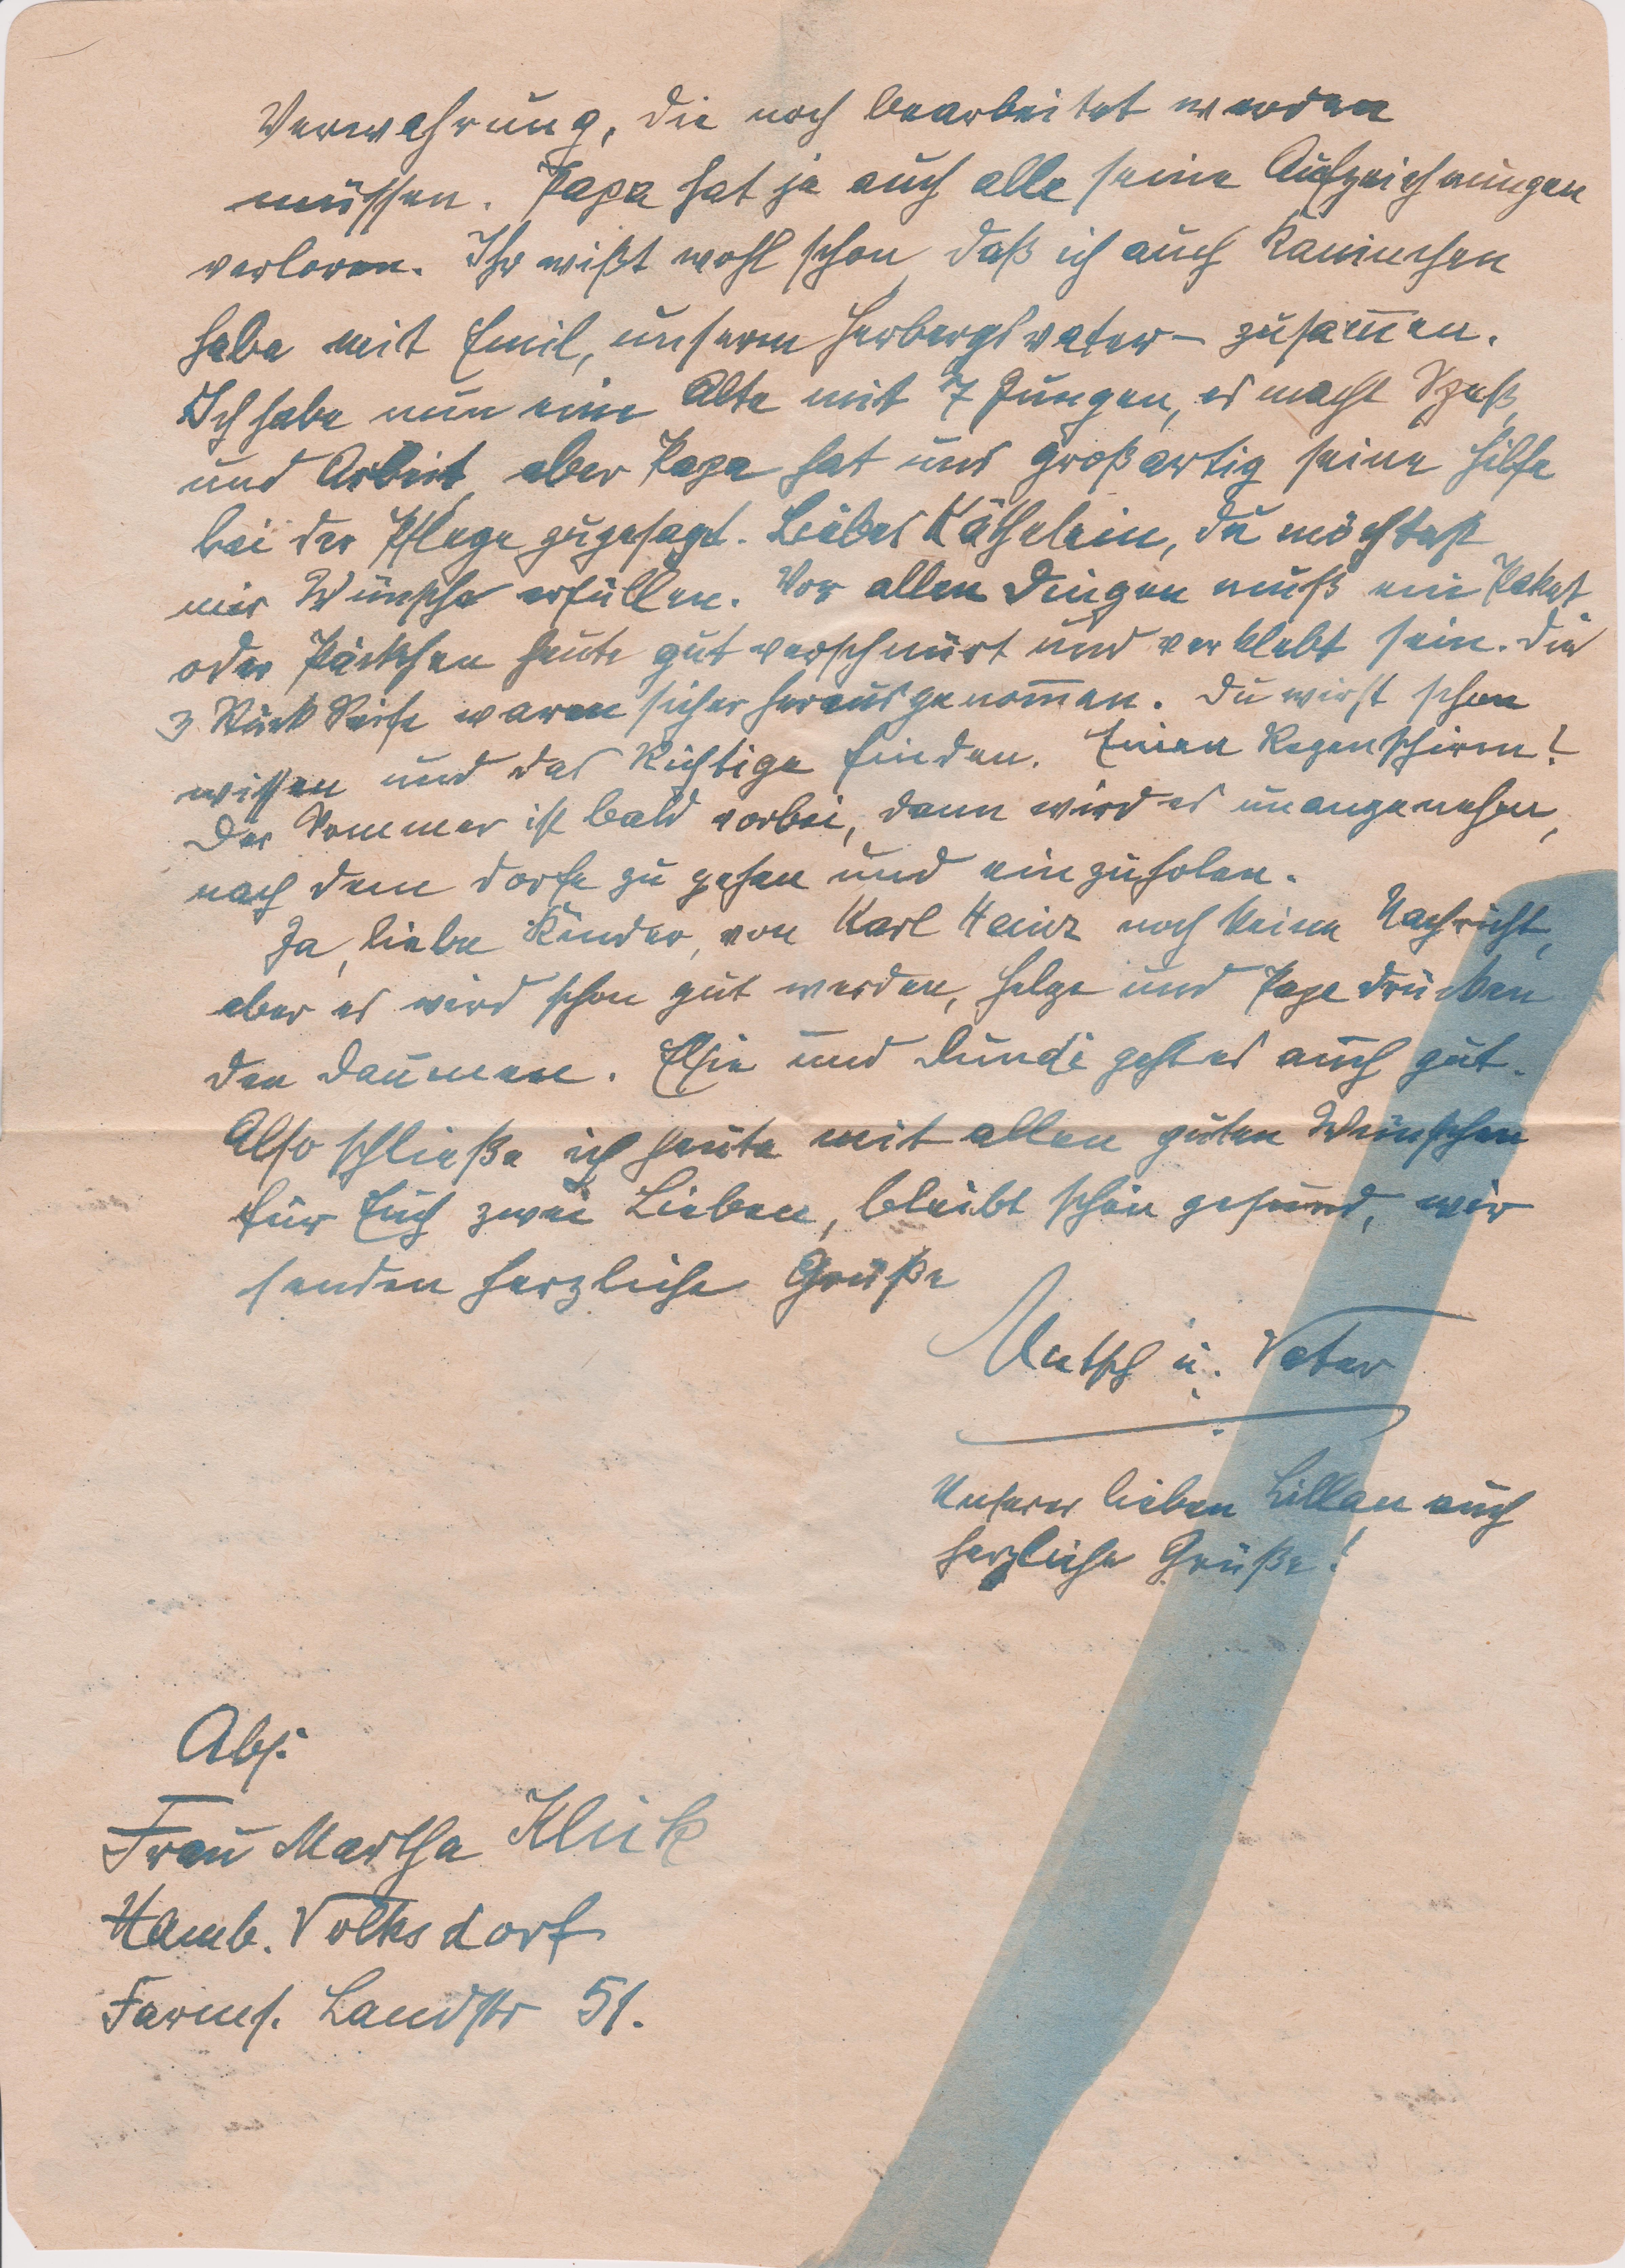 Verwahrung, die noch bearbeitet werden
müssen. Papa hat ja auch alle seine Aufzeichnungen
verloren. Ihr wißt wohl schon, daß ich auch Kaninchen
habe mit Emil, unserm Herbergsvater – zusammen.
Ich habe nun eine Alte mit 7 Jungen, es macht Spaß,
und Arbeit, aber Papa hat uns großartig seine Hilfe
bei der Pflege zugesagt. Liebes Käthelein, du möchtest
mir Wünsche erfüllen. Vor allen Dingen muß ein Paket
oder Päckchen heute gut verschnürt und verklebt sein. Die
3 Stück Seife waren sicher herausgenommen. Du wirst schon
wissen und das Richtige finden. Einen Regenschirm?
Der Sommer ist bald vorbei, dann wird es unangenehm,
nach dem Dorfe zu gehen und einzuholen.
Ja, liebe Kinder, von Karl Heinz noch keine Nachricht,
aber es wird schon gut werden, Helge und Papa drücken
den Daumen. Elsie und geht es auch gut.
Also schließe ich heute mit allen guten Wünschen
für Euch zwei Lieben, bleibt schön gesund, wir
senden herzliche Grüße
Mutsch u. Vater
Unserer lieben Lillan auch
herzliche Grüße!
Abs.
Frau Martha
Hamb. Volksdorf
Farms. Landstr 51.